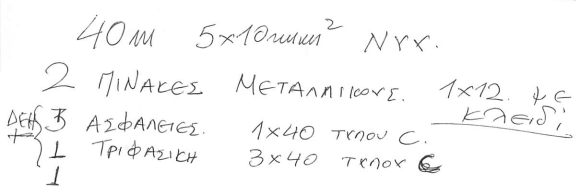 40m 5x10mm² ΝΥΥ.
2 ΠΙΝΑΚΕΣ ΜΕΤΑΛΛΙΚΟΥΣ. 1x12. με ΚΛΕΙΔΙ
ΔΕΗ 3 ΑΣΦΑΛΕΙΕΣ. 1x40 ΤΥΠΟΥ C.
1 ΤΡΙΦΑΣΙΚΗ 3x40 ΤΥΠΟΥ C
1